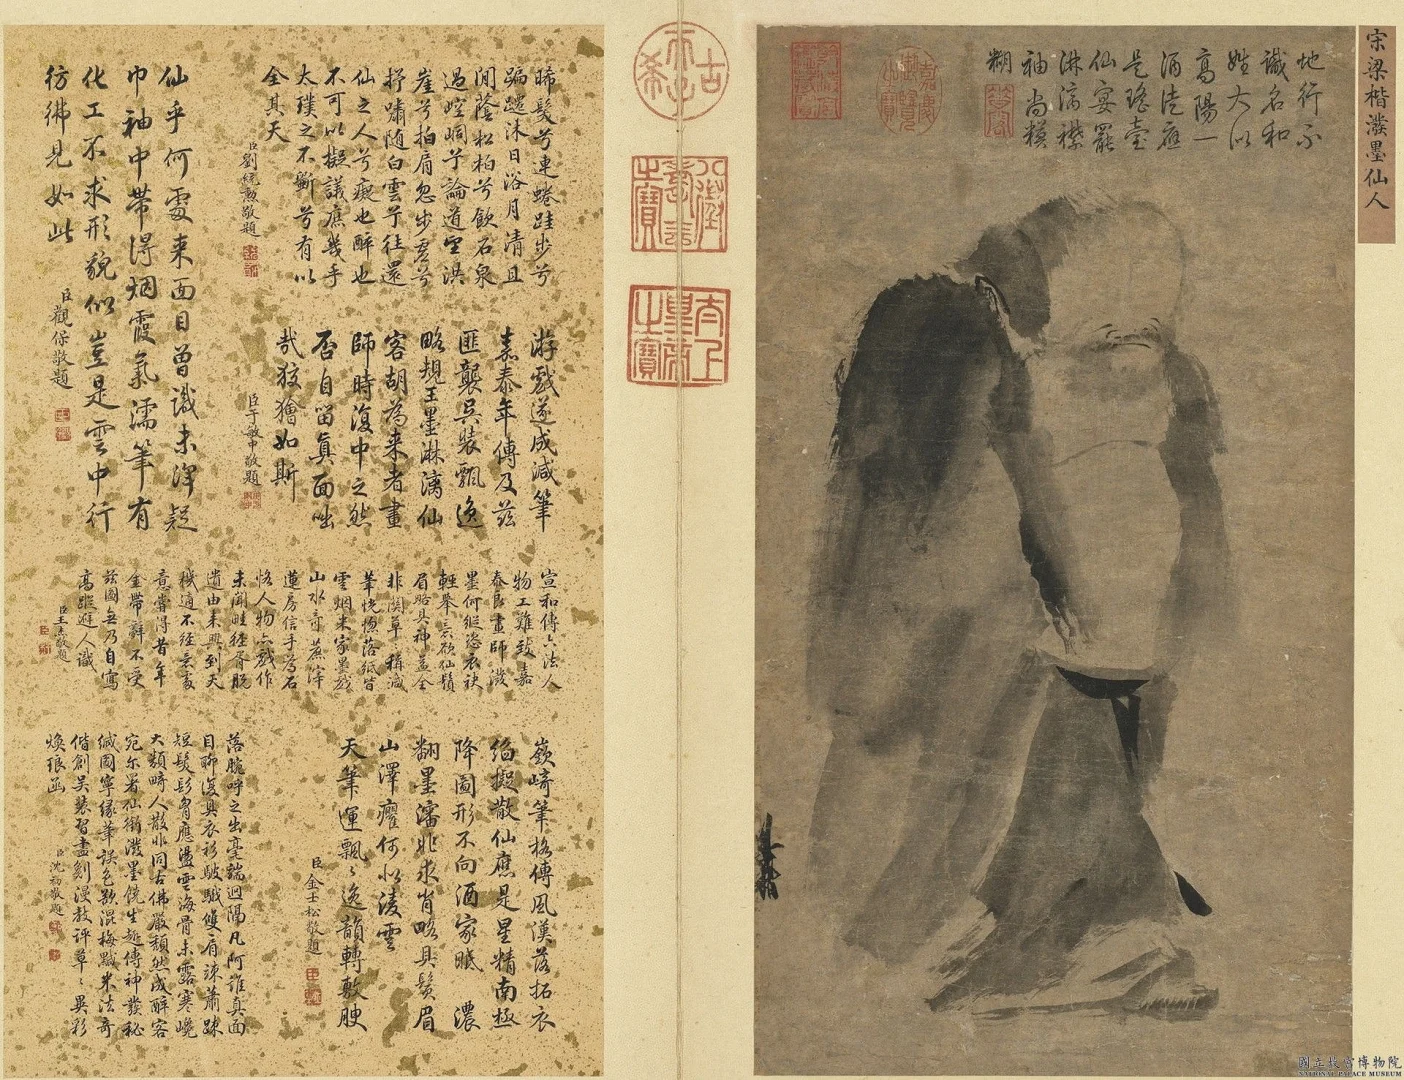 宋梁楷潑墨仙人
地行不
識名和
姓大似
高陽一
酒徒應
是瑤臺
仙宴罷
淋漓襟
袖尚模
糊
嘉慶御覽之寶
梁楷
古希天子
八徵耄念之寶
太上皇帝之寶
晞髮兮連蜷跬步兮
蹁躚沐日浴月清且
閒蔭松柏兮飲石泉
過崆峒兮論道望洪
崖兮拍肩忽步虛兮
抒嘯随白雲兮往還
仙之人兮癡也醉也
不可以擬議庶幾乎
太璞之不斲兮有以
全其天
臣劉統勲敬題
仙乎何處来面目曾識未渾疑
巾袖中帶得烟霞氣濡筆有
化工不求形貌似豈是雲中行
彷彿見如此
臣觀保敬題
游戲遂成減筆
嘉泰年傳及茲
匪襲吳裝飄逸
略規王墨淋漓仙
客胡為来者畫
師時復中之然
否自留真面咄
哉狡獪如斯
臣于敏中敬題
宣和傳六法人
物工難致嘉
泰良畫師潑
墨何縱恣衣袂
輕舉意欲仙鬚
眉略具神益全
非関草稱減
筆恍惚落紙皆
雲烟米家墨戲
山水奇蔗滓
蓮房信手為石
恪人物亦戲作
未聞畦徑胥脫
遺由来興到天
機適不經意處
意嘗得昔年
金帶辭不受
茲圖無乃自寫
高蹤避人識
臣王杰敬題
嶔崎筆格傳風漢落拓衣
袍擬散仙應是星精南極
降圖形不向酒家眠 濃
翻墨瀋非求肖略具鬚眉
山澤癯何以淩雲
天筆運飄〻逸韻轉敷腴
臣金士松敬題
落腕呼之出毫端迥隔凡阿誰真面
目聊復具衣衫皺皵雙肩竦蕭疎
短髮髟胷應盪雲海骨未露寒巉
大類畸人散非同古佛嚴頹然成醉客
宛尔署仙銜潑墨饒生趣傳神發秘
緘圖寧緣筆誤色混梅黬米法奇
偕創吳裝習盡剗漫教評草〻異彩
煥琅函
臣沈初敬題
國立故宮博物院
NATIONAL PALACE MUSEUM